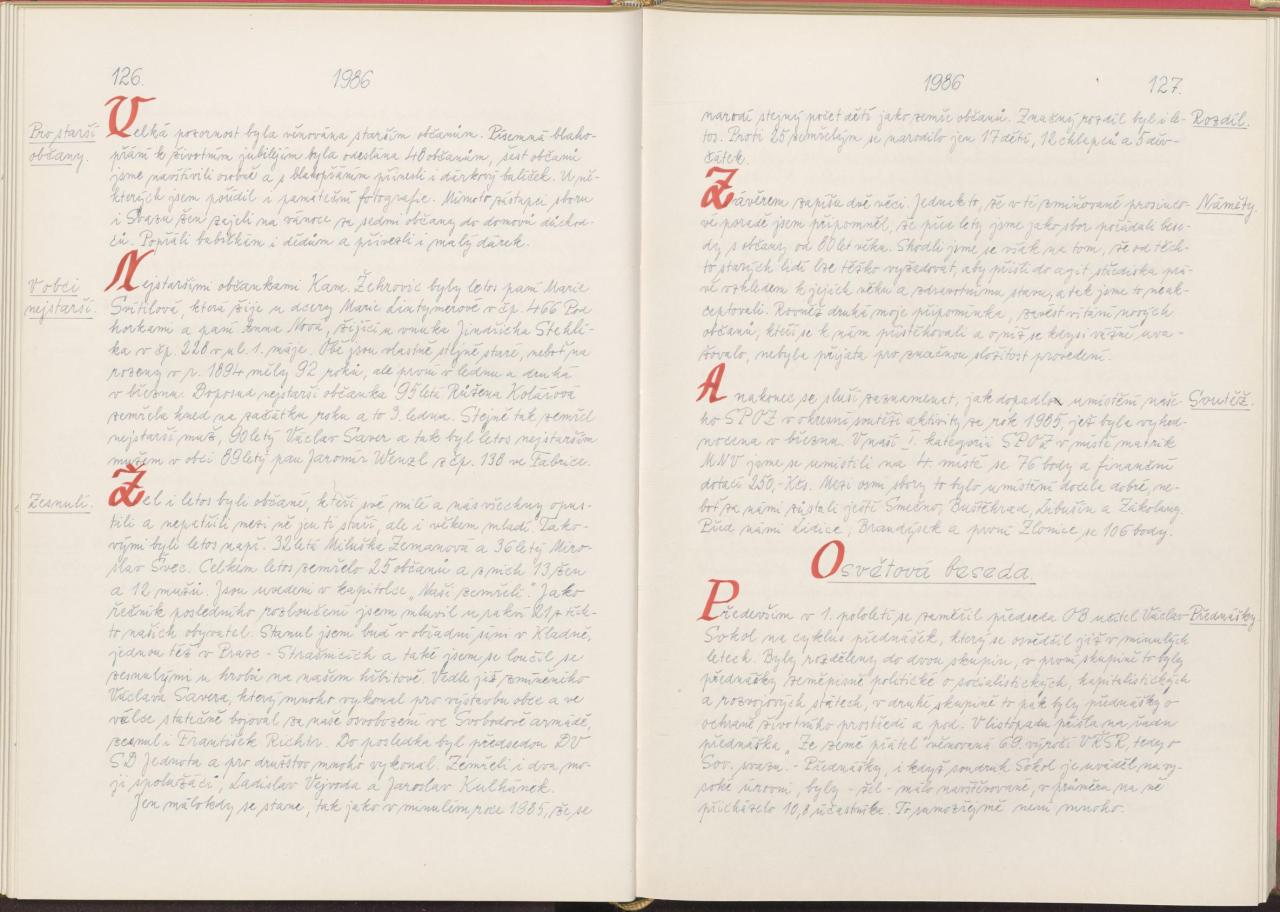 126. 1986
Pro starší
občany.
Velká pozornost byla věnována starším občanům. Písemná blaho-
přání k životním jubilejím byla odeslána 48 občanům, šest občanů
jsme navštívili osobně a s blahopřáním přinesli i dárkový balíček. U ně-
kterých jsem pořídil i památeční fotografie. Mimoto zástupci sboru
i Svazu žen zajeli na vánoce za sedmi občany do domovů důchod-
ců. Popřáli babičkám i dědům a přivezli i malý dárek.
V obci
nejstarší.
Nejstaršími občankami Kam. Žehrovic byly letos paní Marie
Svitilová, která žije u dcery Marie Lintymerové v čp. 466 Pod
horkami a paní Anna Nová, žijící u vnuka Jindřicha Stehlí-
ka v čp. 228 v ul. 1. máje. Obě jsou vlastně stejně staré, neboť na
rozeny v r. 1894 měly 92 roků, ale první v lednu a druhá
v březnu. Doposud nejstarší občanka 95letá Růžena Kolářová
zemřela hned na začátku roku a to 9. ledna. Stejně tak zemřel
nejstarší muž, 90letý Václav Saver a tak byl letos nejstarším
mužem v obci 89letý pan Jaromír Wenzl z čp. 138 ve Fabrice.
Zesnulí.
Žel i letos byli občané, kteří své milé a nás všechny opus-
tili a nepatřili mezi ně jen ti staří, ale i věkem mladí. Tako-
vými byli letos např. 32letá Miluška Zemanová a 36letý Miro-
slav Švec. Celkem letos zemřelo 25 občanů a z nich 13 žen
a 12 mužů. Jsou uvedeni v kapitolce „Naši zemřelí". Jako
řečník posledního rozloučení jsem mluvil u rakví 21 z těch-
to našich obyvatel. Stanul jsem buď v obřadní síni v Kladně,
jednou též v Praze - Strašnicích a také jsem se loučil se
zesnulými u hrobů na našem hřbitově. Vedle již zmíněného
Václava Savera, který mnoho vykonal pro výstavbu obce a ve
válce statečně bojoval za naše osvobození ve Svobodově armádě,
zesnul i František Richtr. Do posledka byl předsedou DV
SD Jednota a pro družstvo mnoho vykonal. Zemřeli i dva mo-
ji spolužáci, Ladislav Vejvoda a Jaroslav Kulhánek.
Jen málokdy se stane, tak jako v minulém roce 1985, že se
1986 127.
narodí stejný počet dětí jako zemře občanů. Značný rozdíl byl i le-
tos. Proti 25 zemřelým se narodilo jen 17 dětí, 12 chlapců a 5 děv-
čátek.
Rozdíl.
Závěrem zapíšu dvě věci. Jednak to, že v té zmiňované prosinco-
vé poradě jsem připomněl, že před lety jsme jako sbor pořádali bese-
dy s občany od 80 let věku. Shodli jsme se však na tom, že od těch-
to starých lidí lze těžko vyžadovat, aby přišli do agit. střediska prá-
vě vzhledem k jejich věku a zdravotnímu stavu, a tak jsme to neak-
ceptovali. Rovněž druhá moje připomínka, zavést vítání nových
občanů, kteří se k nám přistěhovali a o níž se kdysi vážně uva-
žovalo, nebyla přijata pro značnou složitost provedení.
Náměty.
A nakonec se sluší zaznamenat, jak dopadlo umístění naše-
ho SPOZ v okresní soutěži aktivity za rok 1985, jež byla vyhod-
nocena v březnu. V naší I. kategorii SPOZ v místě matrik
MNV jsme se umístili na 4. místě se 76 body a finanční
dotací 250,- Kčs. Mezi osmi sbory to bylo umístění docela dobré, ne-
boť za námi zůstali ještě Smečno, Buštěhrad, Libušín a Zákolany.
Před námi Lidice, Brandýsek a první Zlonice se 106 body.
Soutěž.
Osvětová beseda.
Především v 1. pololetí se zaměřil předseda OB učitel Václav
Sokol na cyklus přednášek, který se osvědčil již v minulých
letech. Byly rozděleny do dvou skupin, v první skupině to byly
přednášky zeměpisně politické o socialistických, kapitalistických
a rozvojových státech, v druhé skupině to pak byly přednášky o
ochraně životního prostředí a pod. V listopadu přišla na řadu
přednáška „Ze země přátel" věnovaná 69. výročí VŘSR, tedy o
Sov. svazu. - Přednášky, i když soudruh Sokol je uváděl na vy-
soké úrovni, byly - žel - málo navštěvované, v průměru na ně
přicházelo 10,8 účastníka. To samozřejmě není mnoho.
Přednášky.